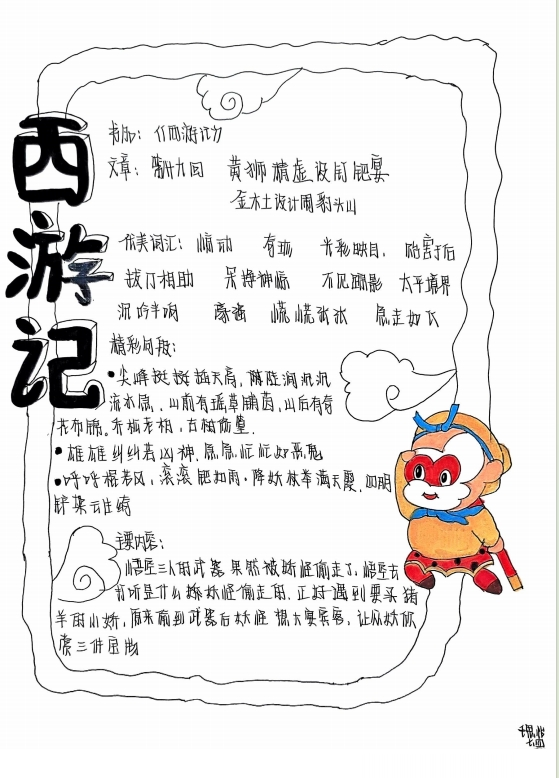 西游记
书名：《西游记》
文章：第八十九回 黄狮精虚设钉耙宴
金木土设计闹豹头山
优美词汇： 惊动 有 光彩映目
拔刀相助 呆挣神惊 不见踪影 太平境界
沉吟半晌 豪强 慌慌张张 急走如飞
精彩句段：
•尖峰挺挺插天高，陡陡涧沉沉
流水急，山前有瑶草铺茵，山后有奇
花布锦。乔柏老桐，古树修篁。
•雄雄纠纠若凶神，急急忙忙如恶鬼
•呼呼棍若风，滚滚耙如雨，降妖杖举满天霞，四明
铲架云生绮
主要内容：
悟空三人的武器果然被妖怪偷走了，悟空去
打听是什么妖怪偷走的，正好遇到要买猪
羊的小妖，原来偷到武器后妖怪想大宴宾客，让众妖欣
赏三件宝贝